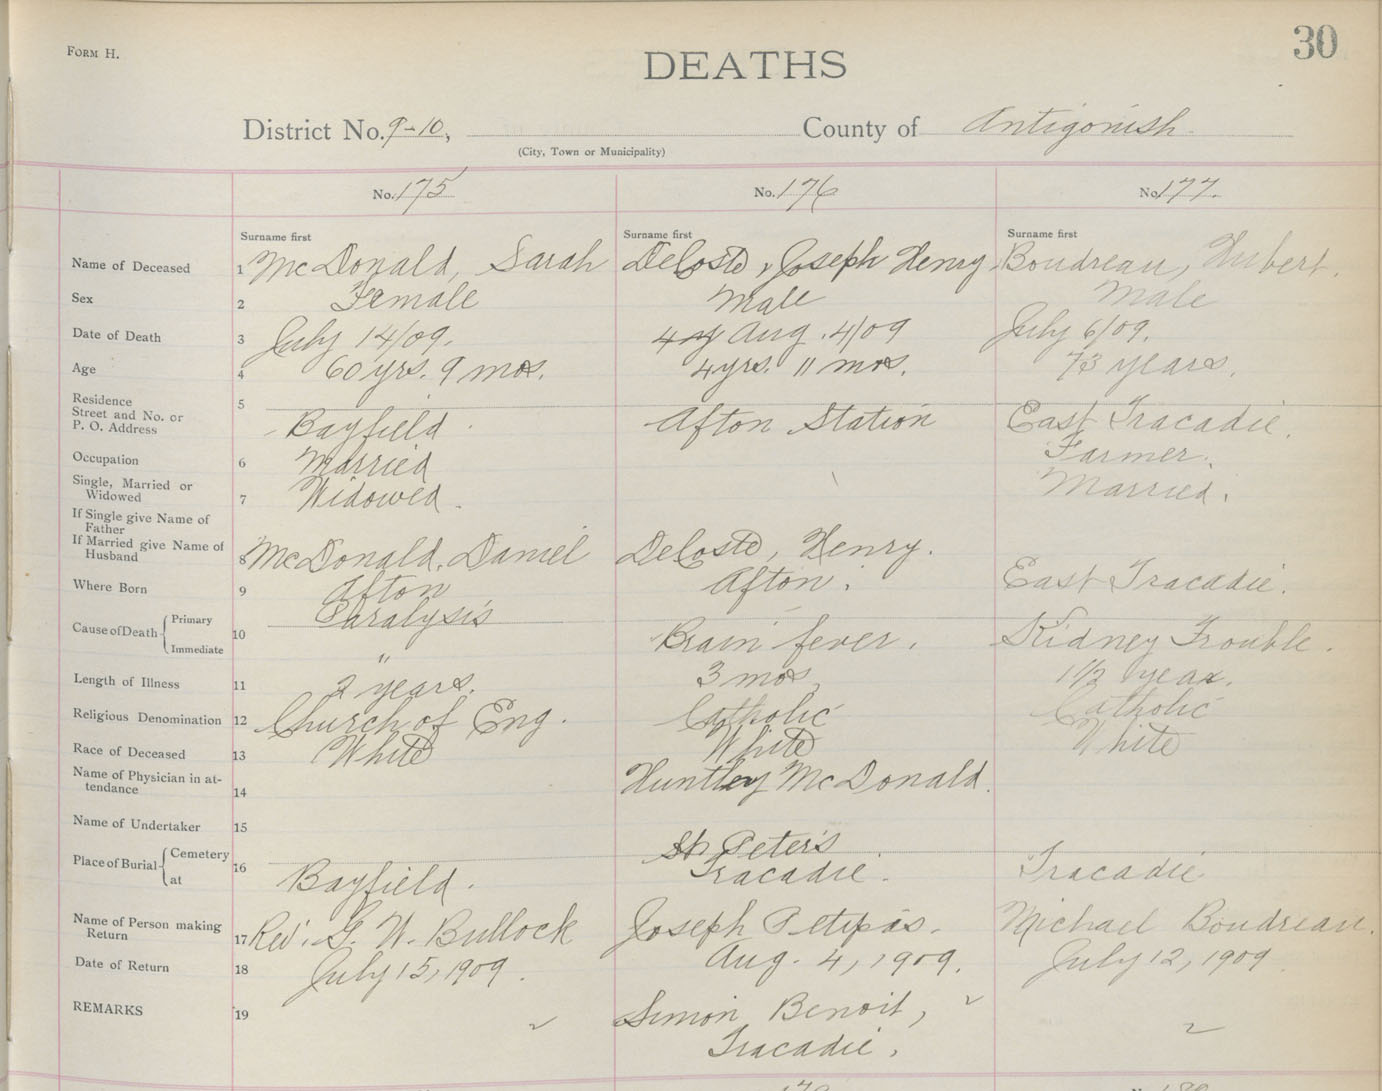 FORM H.
30
DEATHS
District No. 9-10, County of Antigonish
(City, Town or Municipality)
No. 175 No. 176 No. 177.
Surname first Surname first Surname first
Name of Deceased 1 McDonald, Sarah DeCoste, Joseph Henry Boudreau, Hubert.
Sex 2 Female Male Male
Date of Death 3 July 14/09. Aug. 4/09 July 6/09.
Age 4 60 yrs. 9 mos. 4 yrs. 11 mos. 73 years.
Residence 5
Street and No. or
P. O. Address Bayfield. Afton Station East Tracadie.
Occupation 6 Married Farmer.
Single, Married or
Widowed 7 Widowed. Married.
If Single give Name of
Father
If Married give Name of
Husband 8 McDonald, Daniel DeCoste, Henry.
Where Born 9 Afton Afton. East Tracadie.
Cause of Death { Primary Paralysis
10 Brain fever. Kidney Trouble.
Immediate "
Length of Illness 11 2 years. 3 mos. 1 1/2 year.
Religious Denomination 12 Church of Eng. Catholic Catholic
Race of Deceased 13 White White White
Name of Physician in at-
tendance 14 Huntley McDonald.
Name of Undertaker 15
Place of Burial { Cemetery 16 St Peter's
at Bayfield. Tracadie. Tracadie
Name of Person making
Return 17 Rev. G. W. Bullock Joseph Petipas. Michael Boudreau.
Date of Return 18 July 15, 1909. Aug. 4, 1909. July 12, 1909
REMARKS 19 Simon Benoit,
Tracadie.